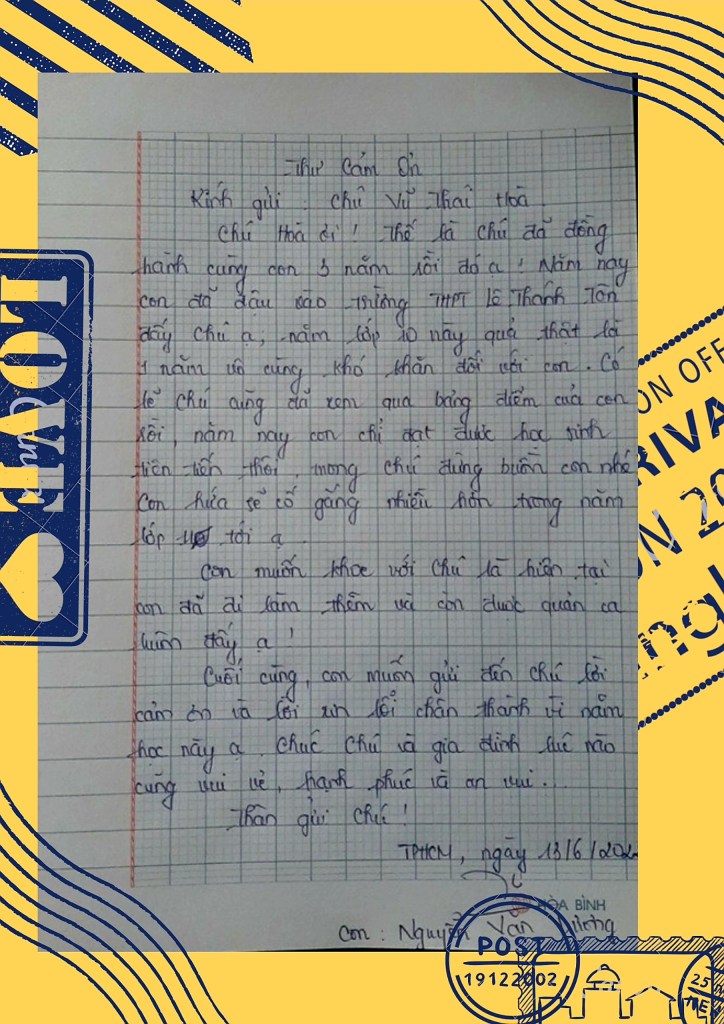 Thư Cảm Ơn
Kính gửi : Chú Vũ Thái Hoà
Chú Hoà ơi ! Thế là chú đã đồng
hành cùng con 3 năm rồi đó ạ ! Năm nay
con đã đậu vào trường THPT Lê Thánh Tôn
đấy chú ạ, năm lớp 10 này quả thật là
1 năm vô cùng khó khăn đối với con. Có
lẽ chú cũng đã xem qua bảng điểm của con
rồi, năm nay con chỉ đạt được học sinh
tiên tiến thôi, mong chú đừng buồn con nhé
Con hứa sẽ cố gắng nhiều hơn trong năm
lớp 11 tới ạ.
Con muốn khoe với chú là hiện tại
con đã đi làm thêm và còn được quản ca
luôn đấy ạ !
Cuối cùng, con muốn gửi đến chú lời
cảm ơn và lời xin lỗi chân thành vì năm
học này ạ. Chúc chú và gia đình lúc nào
cũng vui vẻ, hạnh phúc và an vui...
Thân gửi chú !
TPHCM, ngày 13/6/202
HÒA BÌNH
Con : Nguyễn Văn
LOVE
ON OFF
RIVA
ON 20
POST
19122002
25